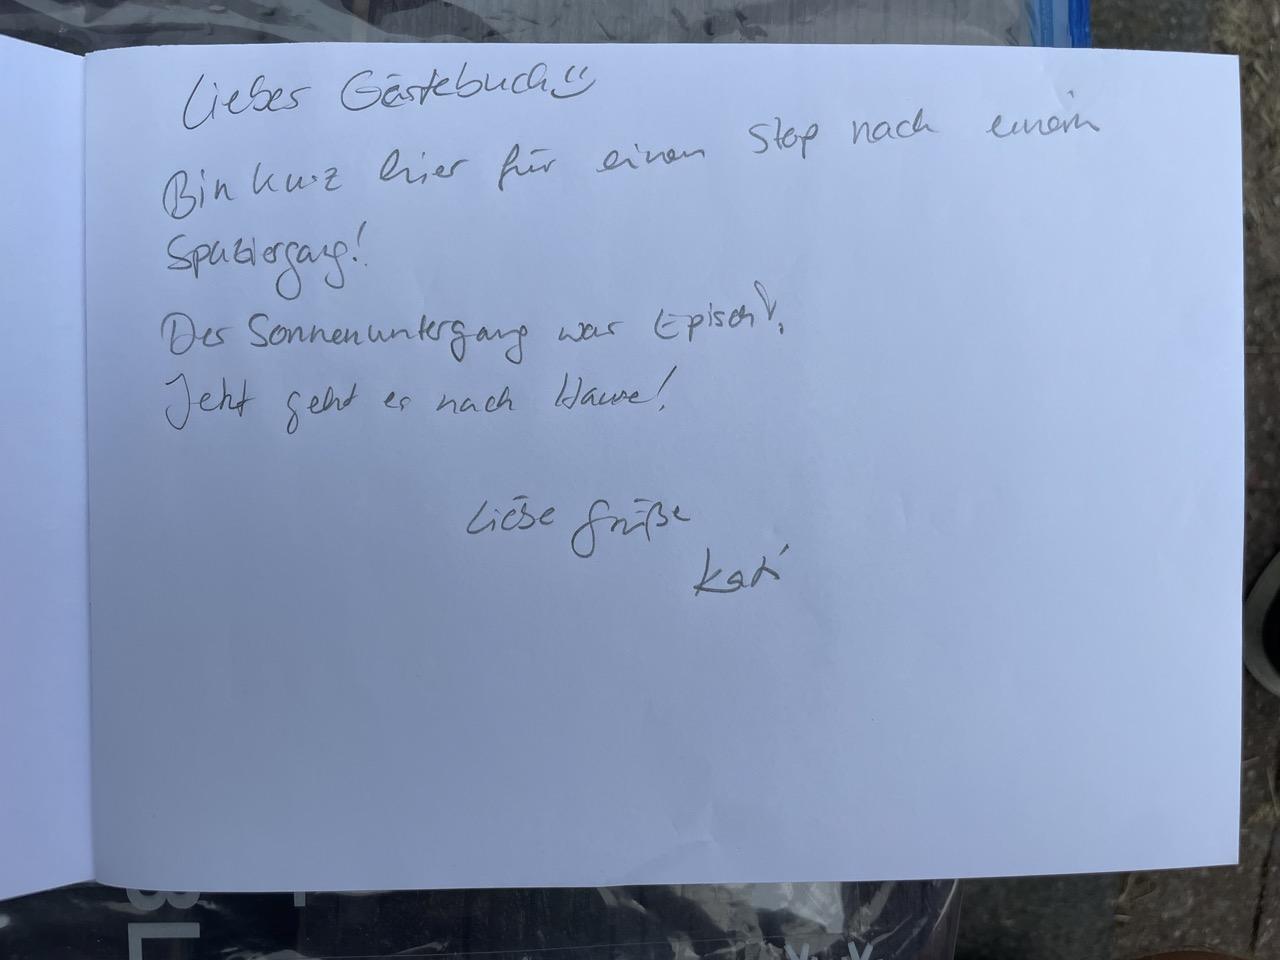 Liebes Gästebuch
Bin kurz hier für einen Stop nach einem
Spaziergang!
Der Sonnenuntergang war Episch!
Jetzt geht es nach Hause!
Liebe Grüße
Kati
3L